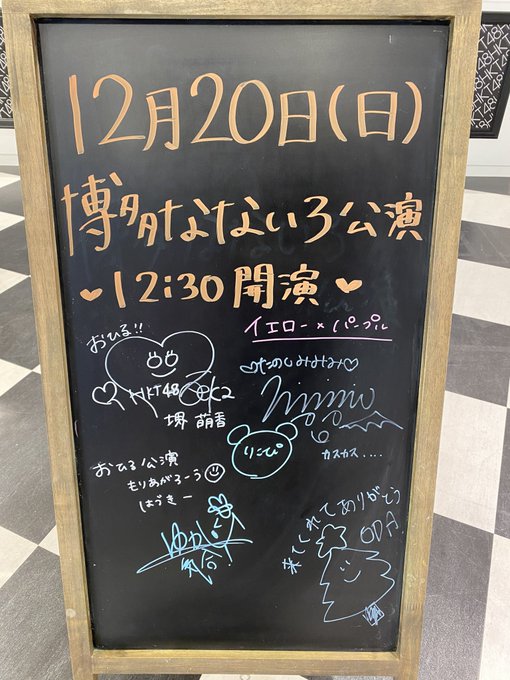 12月20日(日)
博多なないろ公演
12:30 開演
イエロー×パープル
おひる!!
HKT48
堺 萌香
たのしみみみみ
りこぴ
カスカス....
おひる公演
もりあがろーう
はづきー
ゆか
気合!
来てくれてありがとう
ODA!